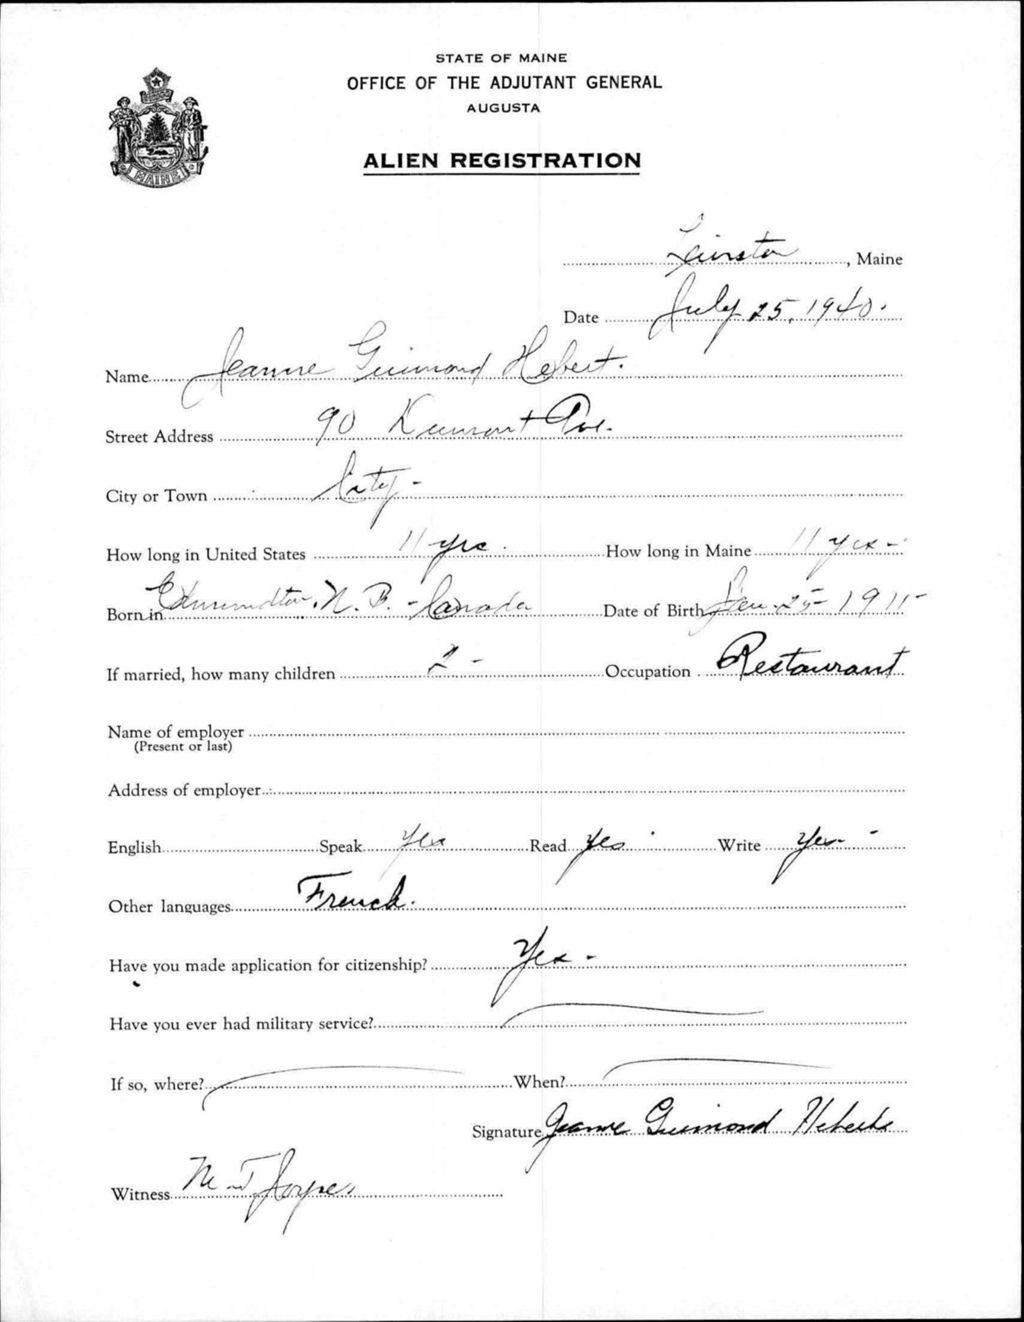 STATE OF MAINE
OFFICE OF THE ADJUTANT GENERAL
AUGUSTA
MAINE
ALIEN REGISTRATION
Lewiston, Maine
Date July 25, 1940.
Name Jeanne Guimond Hebert.
Street Address 90 Dumont Ave.
City or Town City -
How long in United States 11 yrs. How long in Maine 11 yrs -
Born in Edmundton, N. B. - Canada Date of Birth Jan. 25 - 1911 -
If married, how many children 2 - Occupation Restaurant
Name of employer
(Present or last)
Address of employer
English Speak Yes Read Yes Write Yes -
Other languages French.
Have you made application for citizenship? Yes -
Have you ever had military service?
If so, where? When?
Signature Jeanne Guimond Hebert
Witness